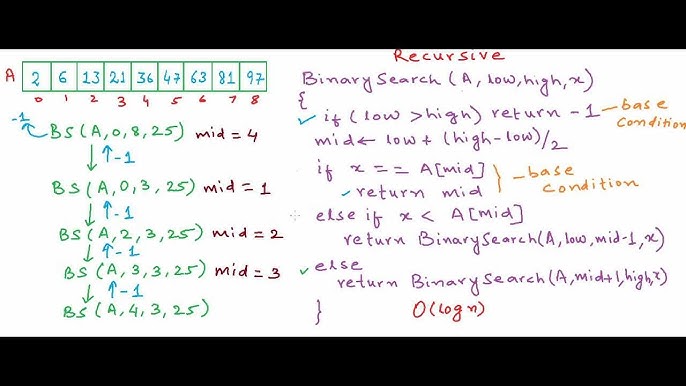 A 2 6 13 21 36 47 63 81 97
0 1 2 3 4 5 6 7 8
-1 BS(A,0,8,25) mid = 4
-1
BS(A,0,3,25) mid = 1
-1
BS(A,2,3,25) mid = 2
-1
BS(A,3,3,25) mid = 3
-1
BS(A,4,3,25)
Recursive
BinarySearch(A,low,high,x)
{
if(low>high) return -1 - base condition
mid← low + (high-low)/2
if x == A[mid]
return mid } - base condition
else if x < A[mid]
return BinarySearch(A,low,mid-1,x)
else
return BinarySearch(A,mid+1,high,x)
}
O(logn)